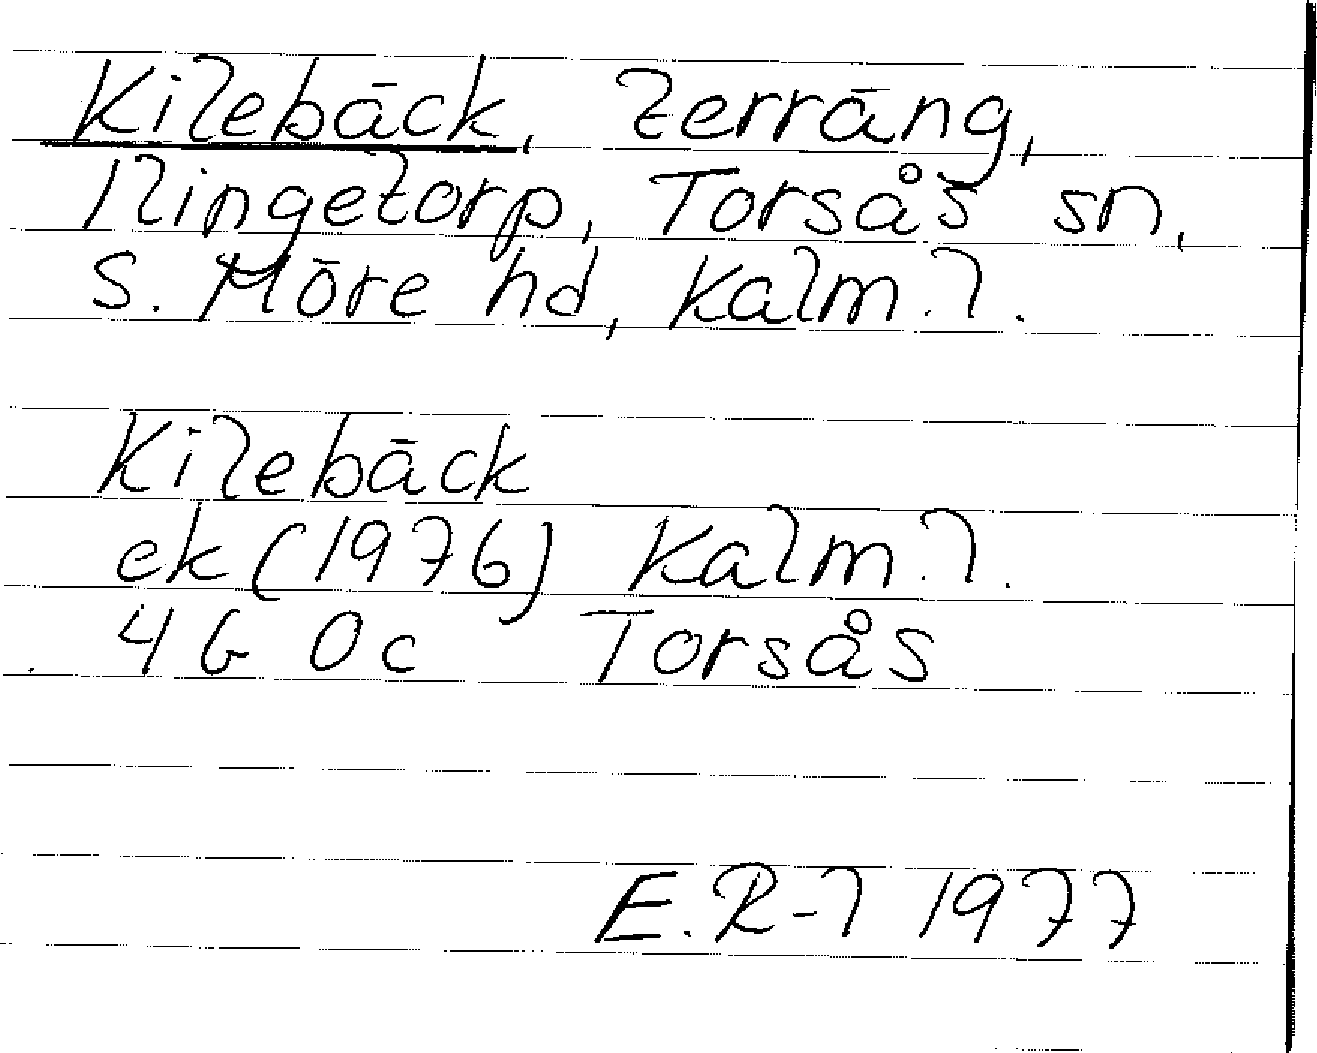 Kilebäck, terräng,
Ringetorp, Torsås sn,
S. Möre hd, Kalm. l.
Kilebäck
ek (1976) Kalm. l.
4G 0c Torsås
E. R-l 1977